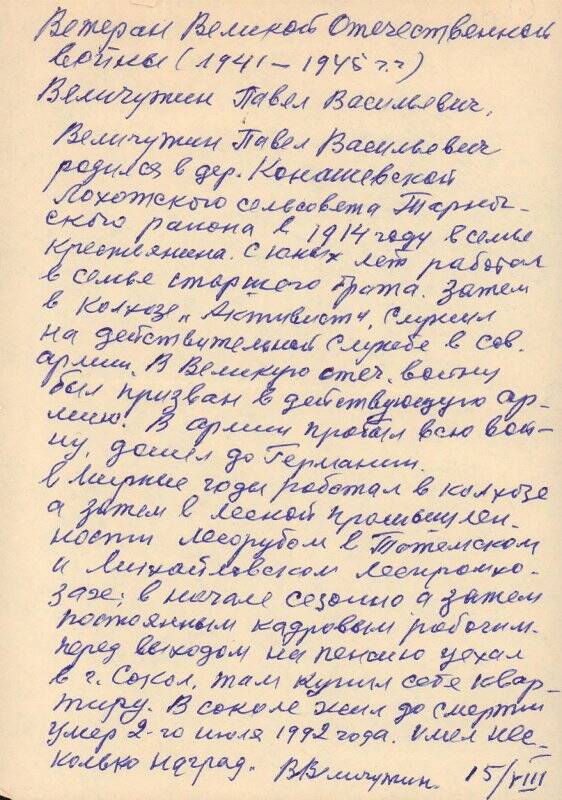 Ветеран Великой Отечественной
войны (1941-1945 г.г)
Величутин Павел Васильевич.
Величутин Павел Васильевич
родился в дер. Конашевской
Лохотского сельсовета Тарног-
ского района в 1914 году в семье
крестьянина. С юных лет работал
в семье старшего брата. Затем
в колхозе „Активист", служил
на действительной службе в сов.
армии. В Великую отеч. войну
был призван в действующую ар-
мию. В армии пробыл всю вой-
ну, дошел до Германии.
В мирные годы работал в колхозе
а затем в лесной промышлен-
ности лесорубом в Тотемском
и Михайловском леспромхо-
зах; в начале сезонно а затем
постоянным кадровым рабочим.
перед выходом на пенсию уехал
в г. Сокол, там купил себе квар-
тиру. В соколе жил до смерти
умер 2-го июля 1992 года. Имел нес-
колько наград. ВВеличутин. 15/VIII